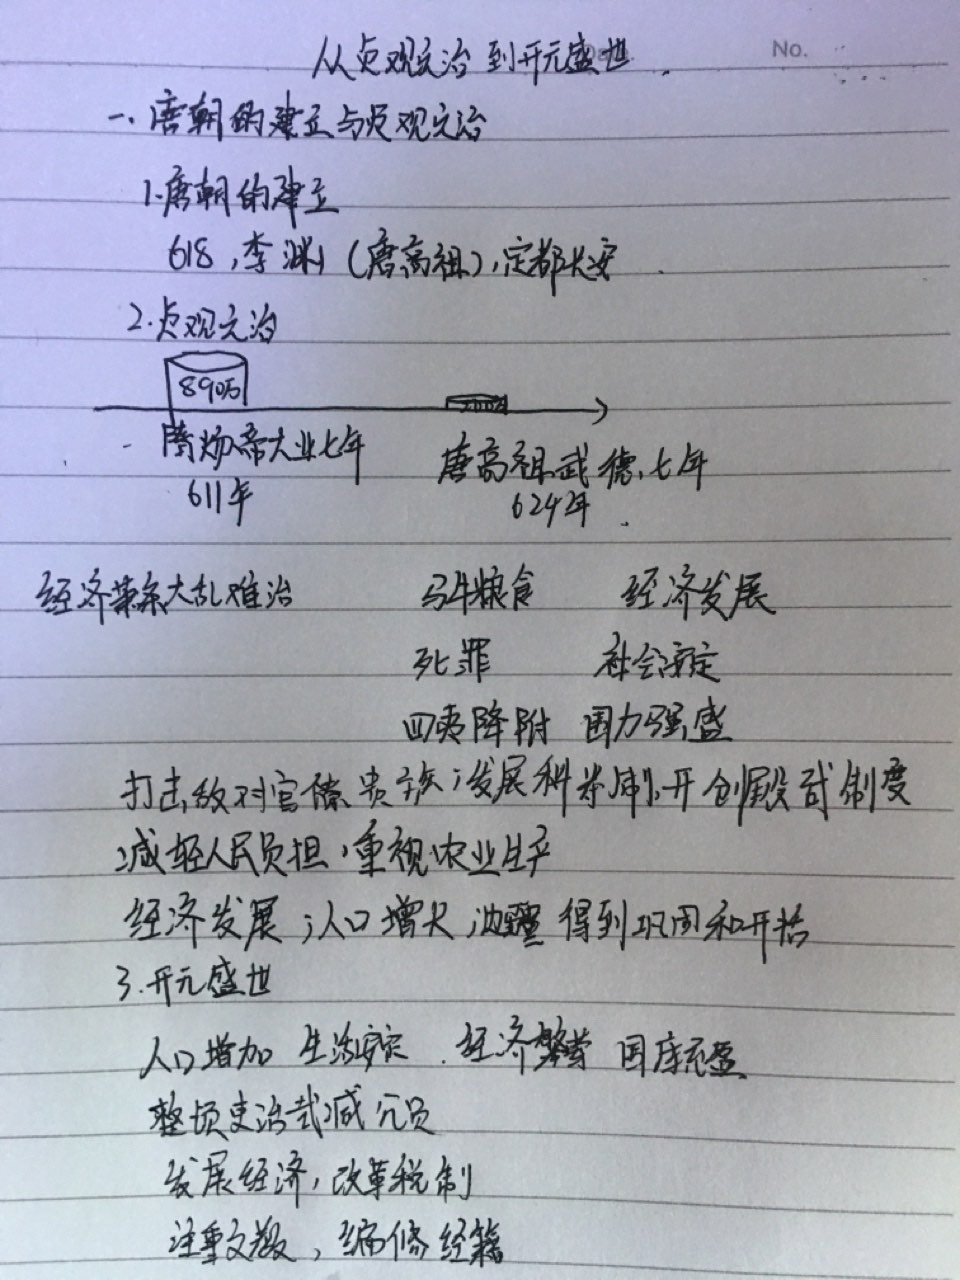 从贞观之治到开元盛世
No.
一.唐朝的建立与贞观之治
1.唐朝的建立
618,李渊(唐高祖),定都长安
2.贞观之治
890万
隋炀帝大业七年 唐高祖武德七年
611年 624年
经济萧条大乱难治 马牛粮食 经济发展
死罪 社会安定
四夷降附 国力强盛
打击敌对官僚贵族,发展科举制,开创殿试制度
减轻人民负担,重视农业生产
经济发展,人口增长,边疆得到巩固和开拓
3.开元盛世
人口增加 生活安定 经济繁荣 国库充盈
整顿吏治裁减冗员
发展经济,改革税制
注重文教,编修经籍